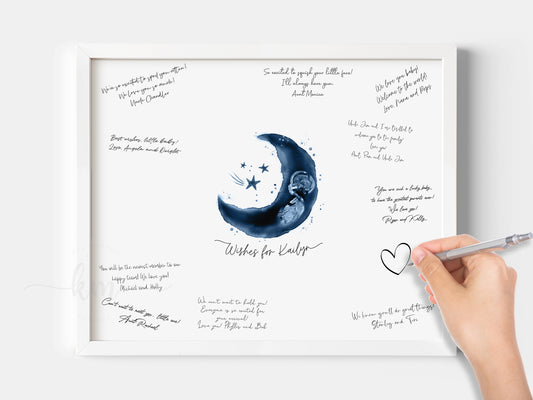 We're so excited to spoil you rotten!
We love you so much!
Uncle Chandler
So excited to squish your little face!
I'll always love you,
Aunt Monica
We love you baby!
Welcome to the world.
Love, Nana and Pops
Best wishes, little baby!
Love, Angela and Dwight
Uncle Jim and I are thrilled to
welcome you to the family
love you
Aunt Pam and Uncle Jim
You are such a lucky baby,
to have the greatest parents ever!
We love you!
Ryan and Kelly
Wishes for Kailyn
You will be the newest member to our
happy team! We love you!
Michael and Holly
Can't wait to meet you, little one!
Aunt Rachael
We can't wait to hold you!
Everyone is so excited for
your arrival!
Love you! Phyllis and Bob
We know you'll do great things!
Stanley and Teri